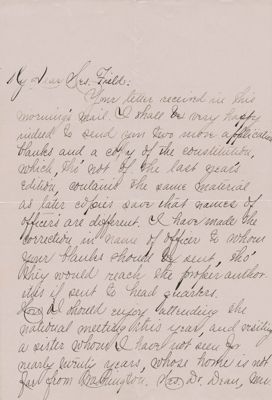 My Dear Mrs. Field:
Your letter received in this
morning's mail. I shall be very happy
indeed to send you two more application
blanks and a copy of the constitution,
which, tho' not of the last year's
edition, contains the same material
as later copies save that names of
officers are different. I have made the
correction in name of officer to whom
your blanks should be sent, tho'
they would reach the proper author
ities if sent to head quarters.
I should enjoy attending the
national meeting this year, and visiting
a sister whom I have not seen for
nearly twenty years, whose home is not
far from Washington. Dr. Dean,